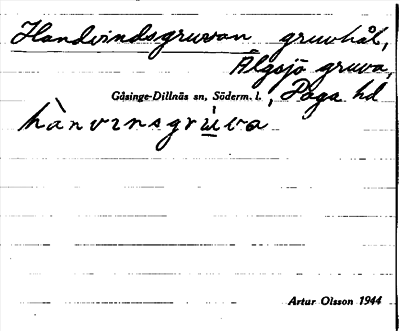 Handvindsgruvan gruvhål,
Älgsjö gruva,
Gåsinge-Dillnäs sn, Söderm. l., Daga hd
hànvinsgrùva
Artur Olsson 1944